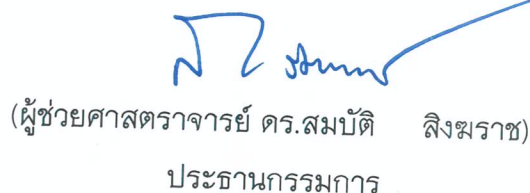 (ผู้ช่วยศาสตราจารย์ ดร.สมบัติ สิงฆราช)
ประธานกรรมการ